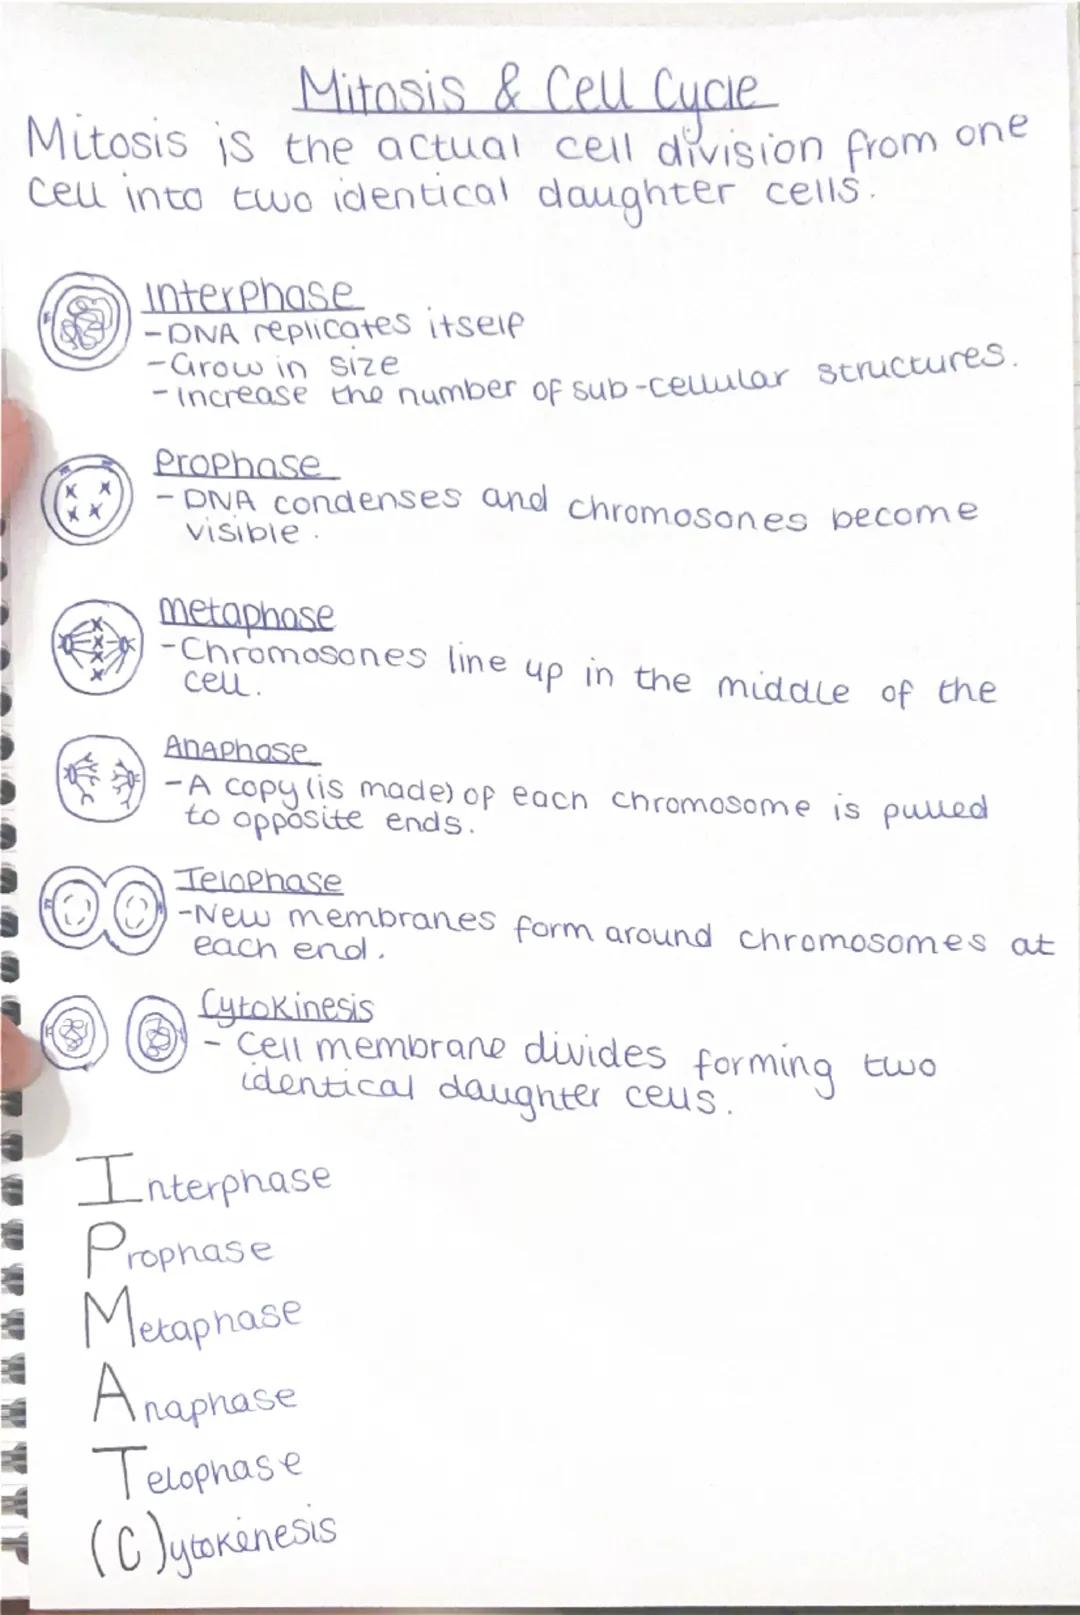 Mitosis & Cell Cycle
Mitosis is the actual cell division from one
cell into two identical daughter cells.
Interphase
-DNA replicates itself
-Grow in size
-Increase the number of sub-cellular structures.
Prophase
-DNA condenses and chromosones become
visible.
Metaphase
-Chromosones line up in the middle of the
cell.
Anaphase
-A copy (is made) of each chromosome is pulled
to opposite ends.
Telophase
-New membranes form around chromosomes at
each end.
Cytokinesis
- Cell membrane divides forming two
identical daughter cells.
Interphase
Prophase
Metaphase
Anaphase
Telophase
(C)ytokenesis